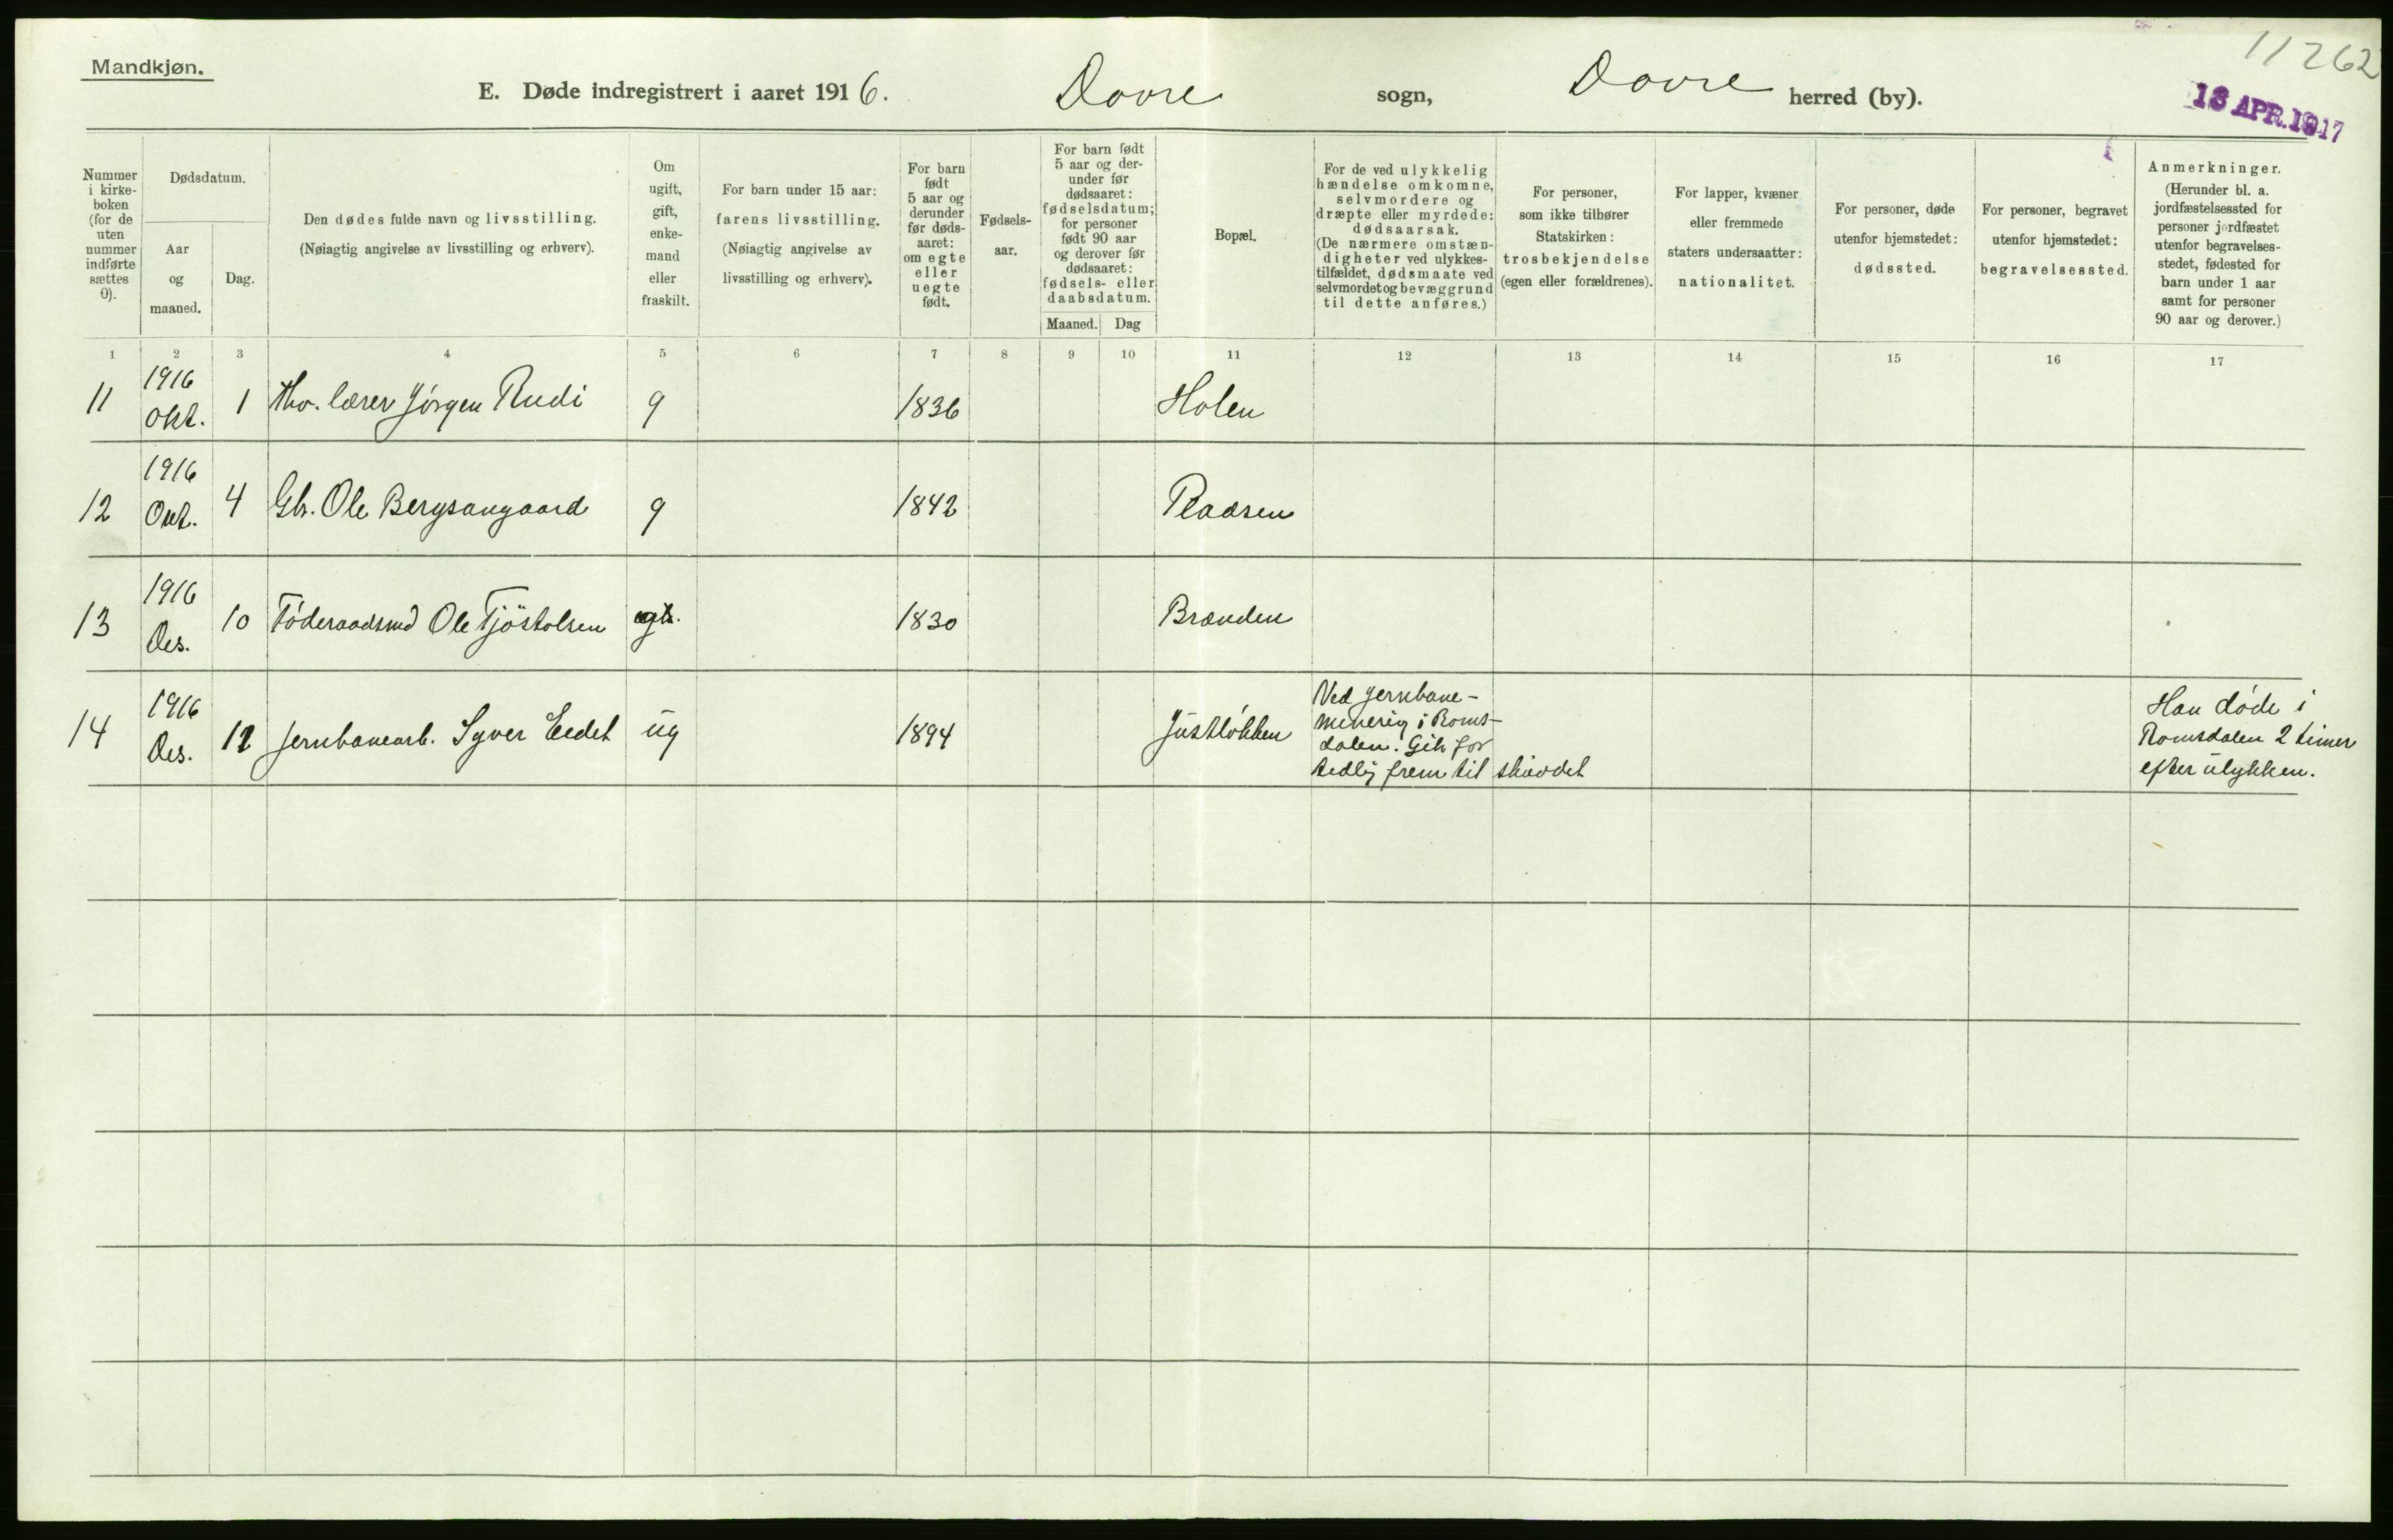 Mandkjøn.
11262
E. Døde indregistrert i aaret 1916. Dovre sogn, Dovre herred (by).
18 APR. 1917
Nummer
i kirke-
boken
(for de
uten
nummer
indførte
sættes
0).
Dødsdatum.
Aar
og
maaned.
Dag.
Den dødes fulde navn og livsstilling.
(Nøiagtig angivelse av livsstilling og erhverv).
Om
ugift,
gift,
enke-
mand
eller
fraskilt.
For barn under 15 aar:
farens livsstilling.
(Nøiagtig angivelse av
livsstilling og erhverv).
For barn
født
5 aar og
derunder
før døds-
aaret:
om egte
eller
uegte
født.
Fødsels-
aar.
For barn født
5 aar og der-
under før
dødsaaret:
fødselsdatum;
for personer
født 90 aar
og derover før
dødsaaret:
fødsels- eller
daabsdatum.
Maaned. Dag
Bopæl.
For de ved ulykkelig
hændelse omkomne,
selvmordere og
dræpte eller myrdede:
dødsaarsak.
(De nærmere omstæn-
digheter ved ulykkes-
tilfældet, dødsmaate ved
selvmordet og bevæggrund
til dette anføres.)
For personer,
som ikke tilhører
Statskirken:
trosbekjendelse
(egen eller forældrenes).
For lapper, kvæner
eller fremmede
staters undersaatter:
nationalitet.
For personer, døde
utenfor hjemstedet:
dødssted.
For personer, begravet
utenfor hjemstedet:
begravelsessted.
Anmerkninger.
(Herunder bl. a.
jordfæstelsessted for
personer jordfæstet
utenfor begravelses-
stedet, fødested for
barn under 1 aar
samt for personer
90 aar og derover.)
1 2 3 4 5 6 7 8 9 10 11 12 13 14 15 16 17
11 1916 Okt. 1 lærer Jörgen Rudi g 1836 Holen
12 1916 Okt. 4 Gbr. Ole Bergsangaard g 1842 Pladsen
13 1916 Des. 10 Föderaadsmd Ole Tjöstolsen 1830 Brænden
14 1916 Des. 12 Jernbanearb. Syver Eedet ug 1894 Jústlökken
Ved jernbane-
minering i Roms-
dalen. Gik for
tidlig frem til skuddet
Han døde i
Romsdalen 2 timer
efter ulykken.